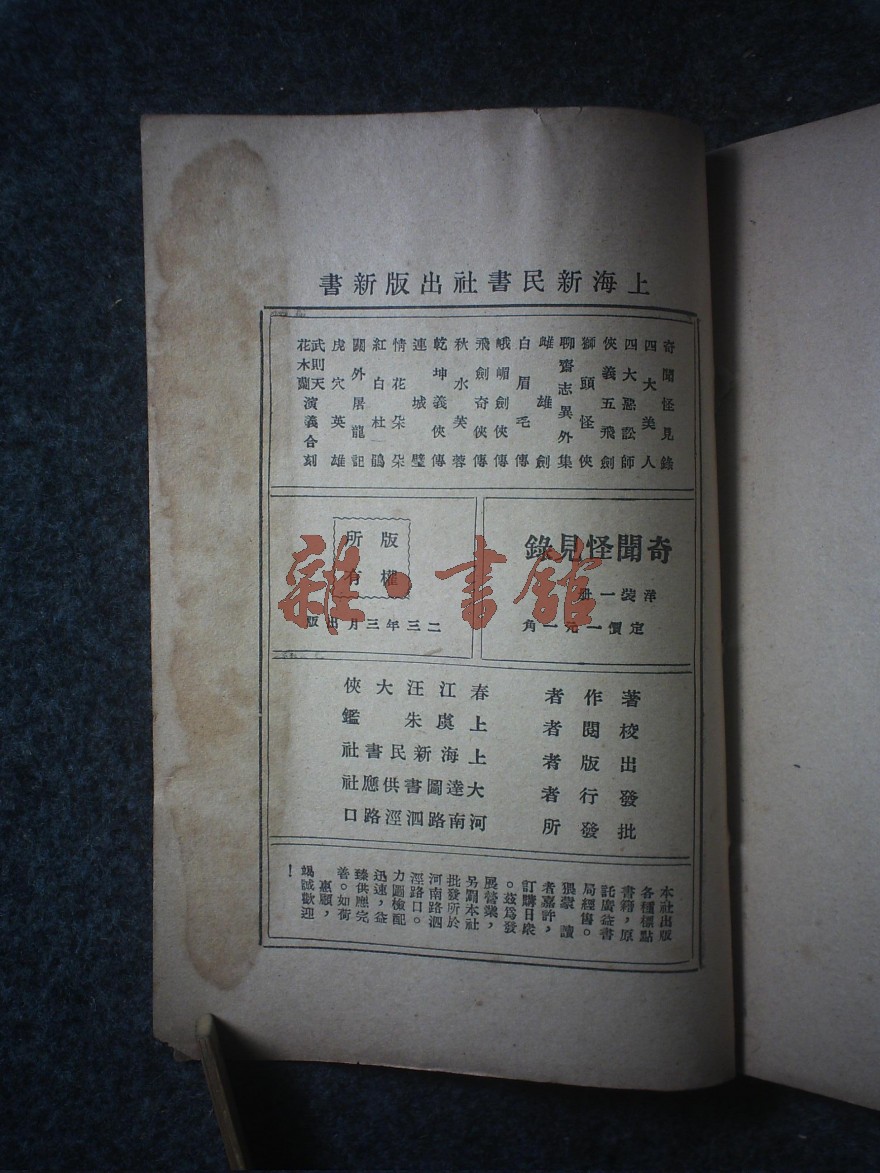 上海新民書社出版新書
奇聞怪見錄
四大美人
四大惡訟師
俠義五飛劍
獅頭怪俠
聊齋志異外集
雌雄劍
白眉毛傳
峨嵋劍俠傳
飛劍奇俠傳
秋水芙蓉
乾坤義俠傳
連城璧
情花朵朵
紅白杜鵑
關外屠龍記
虎穴英雄
武則天
花木蘭演義合刻
奇聞怪見錄
洋裝一册
定價一元一角
版權
所有
二三年三月出版
著作者 春江汪大俠
校閱者 上虞朱鑑
出版者 上海新民書社
發行者 大達圖書供應社
批發所 河南路泗涇路口
本社出版
各種標點
書籍,原
託廣益書
局經售。
猥蒙讀
者嘉許,
訂購日衆
。茲爲發
展營業,
另闢本社
批發所於
河南路泗
涇路口。
力圖檢配
迅速,益
臻供應完
善。如荷
惠顧,
竭誠歡迎
!
雜·書館